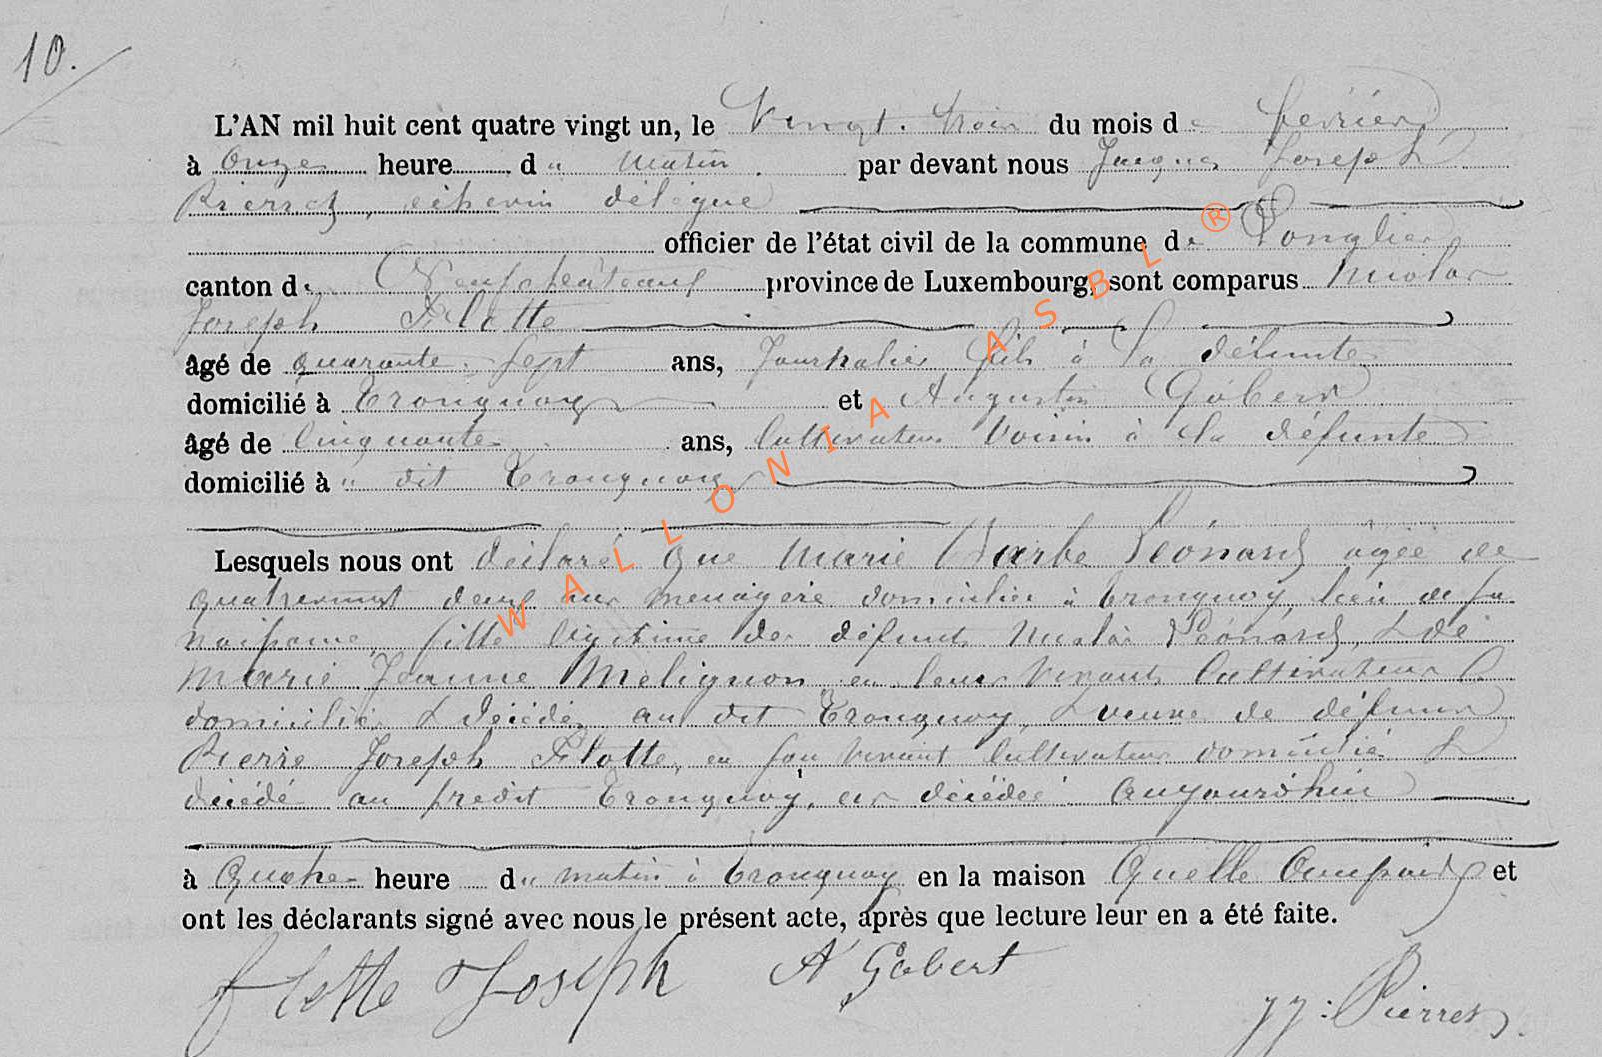 10.
L'AN mil huit cent quatre vingt un, le Vingt-trois du mois de février
à Onze heure du matin par devant nous Jacques Joseph
Pierret, échevin délégué
officier de l'état civil de la commune de Longlier
canton de Neufchâteau province de Luxembourg, sont comparus Nicolas
Joseph Flotte
âgé de quarante-sept ans, Journalier fils à la défunte
domicilié à Tronquoy et Augustin Gobert
âgé de Cinquante ans, Cultivateur Voisin à la défunte
domicilié à u dit Tronquoy
Lesquels nous ont déclaré que Marie Barbe Léonard agée de
quatrevingt deux ans menagère domiciliée à Tronquoy, lieu de sa
naissance, fille légitime de défunts Nicolas Léonard, & de
Marie Jeanne Melignon en leur vivant Cultivateurs
domiciliés & décédés au dit Tronquoy, & veuve de défunt
Pierre Joseph Flotte, en son vivant Cultivateur domicilié &
décédé au predit Tronquoy, est décédée aujourd'hui
à quatre heure du matin à Tronquoy en la maison qu'elle Occupait et
ont les déclarants signé avec nous le présent acte, après que lecture leur en a été faite.
flotte Joseph A Gobert
JJ: Pierret
WALLONIA ASBL ®